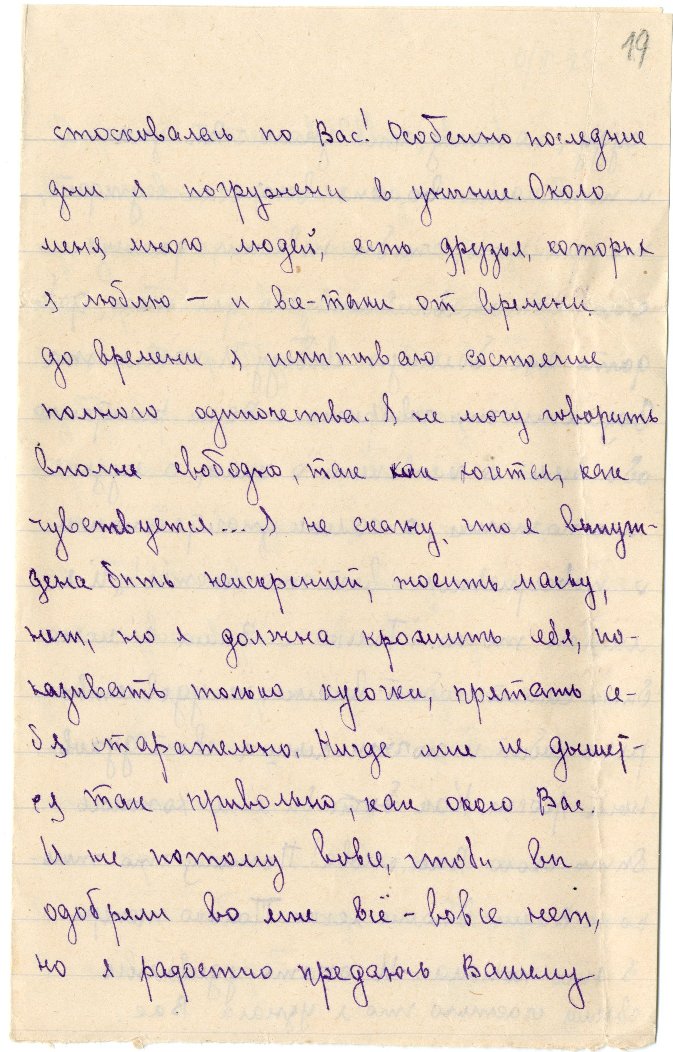 19
стосковалась по Вас! Особенно последние
дни я погружена в уныние. Около
меня много людей, есть друзья, которых
я люблю — и все-таки от времени
до времени я испытываю состояние
полного одиночества. Я не могу говорить
вполне свободно, так как хочется, как
чувствуется... Я не скажу, что я вынуж-
дена быть неискренней, носить маску,
нет, но я должна крошить себя, по-
казывать только кусочки, прятать се-
бя старательно. Нигде мне не дышет-
ся так привольно, как около Вас.
И не потому вовсе, чтобы вы
одобряли во мне всё – вовсе нет,
но я радостно предаюсь Вашему